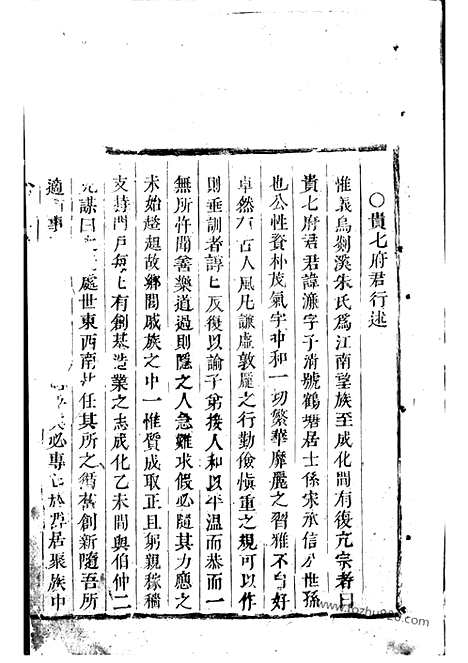 ○貴七府君行述
惟義烏剡溪朱氏爲江南望族至成化間有復亢宗者曰
貴七府君君諱濂字子淸號鶴塘居士係宋承信八世孫
也公性資朴茂氣宇冲和一切繁華靡麗之習雅不自好
卓然有古人風凡謙虛敦龎之行勤儉愼重之規可以作
則垂訓者諄匕反復以諭子弟接人和以平温而恭而一
無所忤聞善樂道過則隱之人急難求假必隨其力應之
未始趑趄故鄉閭戚族之中一惟質成取正且躬親稼穡
支持門戶每匕有創基造業之志成化乙未間與伯仲二
兄謀曰 處世東西南北任其所之舊舊創新隨吾所
適 事 必專 於 居聚族中
www.tozhu928.com